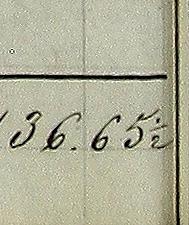 136.65½